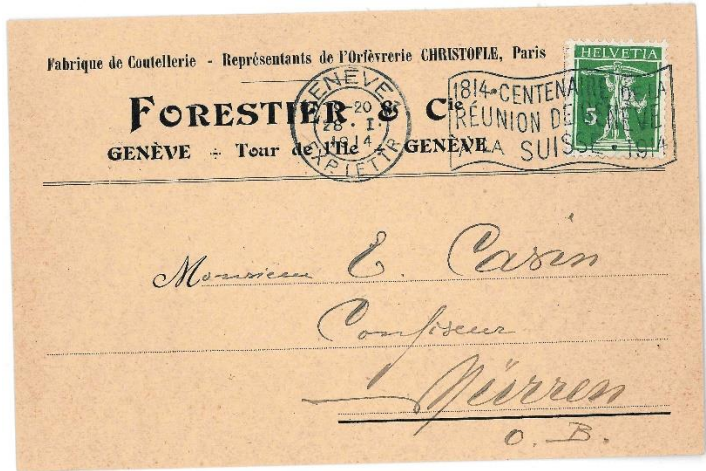 Fabrique de Coutellerie - Représentants de l'Orfèvrerie CHRISTOFLE, Paris
FORESTIER & Cie
GENÈVE ÷ Tour de l'Ile ÷ GENÈVE
GENÈVE
20
28. I.
1914
EXP. LETTR.
1814 • CENTENAIRE DE LA
RÉUNION DE GENÈVE
À LA SUISSE • 1914
HELVETIA
5
Monsieur E. Casin
Confiseur
Mürren
O. B.